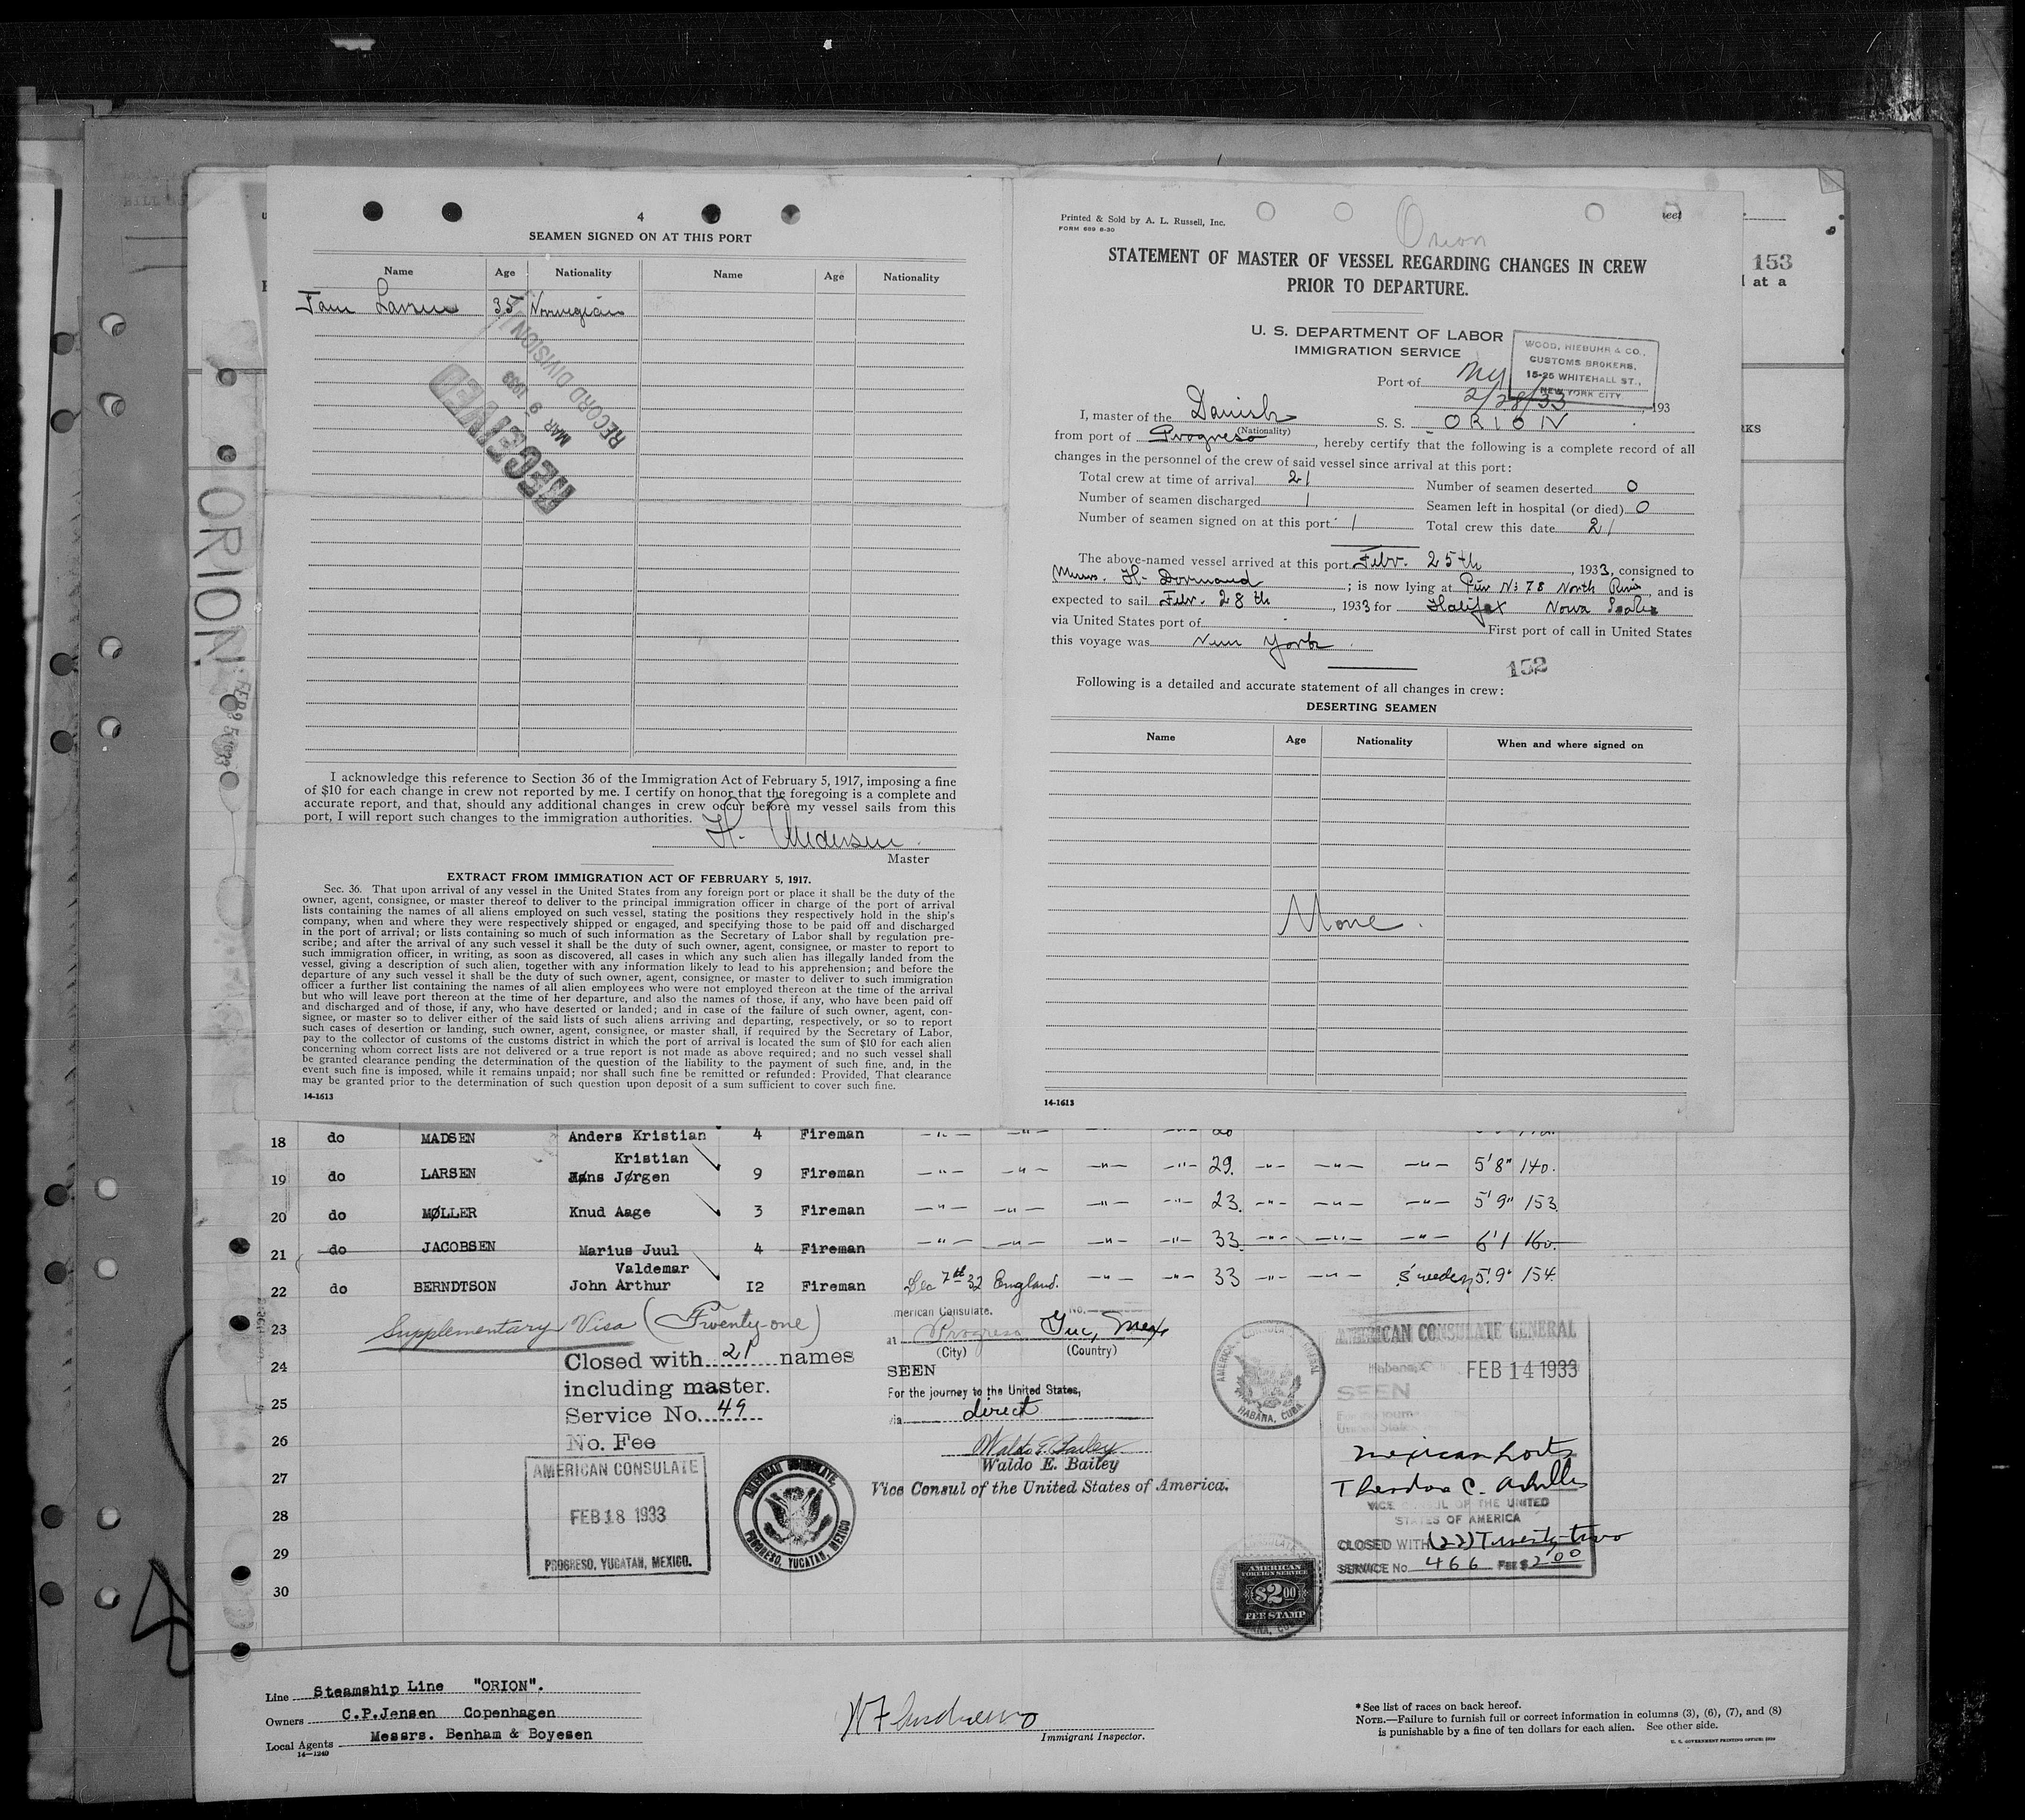 4
SEAMEN SIGNED ON AT THIS PORT
Name Age Nationality Name Age Nationality
35 Norwegian
RECORD DIVISION
MAR 9 1933
RECEIVED
I acknowledge this reference to Section 36 of the Immigration Act of February 5, 1917, imposing a fine
of $10 for each change in crew not reported by me. I certify on honor that the foregoing is a complete and
accurate report, and that, should any additional changes in crew occur before my vessel sails from this
port, I will report such changes to the immigration authorities.
H. Andersen
Master
EXTRACT FROM IMMIGRATION ACT OF FEBRUARY 5, 1917.
Sec. 36. That upon arrival of any vessel in the United States from any foreign port or place it shall be the duty of the
owner, agent, consignee, or master thereof to deliver to the principal immigration officer in charge of the port of arrival
lists containing the names of all aliens employed on such vessel, stating the positions they respectively hold in the ship's
company, when and where they were respectively shipped or engaged, and specifying those to be paid off and discharged
in the port of arrival; or lists containing so much of such information as the Secretary of Labor shall by regulation pre-
scribe; and after the arrival of any such vessel it shall be the duty of such owner, agent, consignee, or master to report to
such immigration officer, in writing, as soon as discovered, all cases in which any such alien has illegally landed from the
vessel, giving a description of such alien, together with any information likely to lead to his apprehension; and before the
departure of any such vessel it shall be the duty of such owner, agent, consignee, or master to deliver to such immigration
officer a further list containing the names of all alien employees who were not employed thereon at the time of the arrival
but who will leave port thereon at the time of her departure, and also the names of those, if any, who have been paid off
and discharged and of those, if any, who have deserted or landed; and in case of the failure of such owner, agent, con-
signee, or master so to deliver either of the said lists of such aliens arriving and departing, respectively, or so to report
such cases of desertion or landing, such owner, agent, consignee, or master shall, if required by the Secretary of Labor,
pay to the collector of customs of the customs district in which the port of arrival is located the sum of $10 for each alien
concerning whom correct lists are not delivered or a true report is not made as above required; and no such vessel shall
be granted clearance pending the determination of the question of the liability to the payment of such fine, and, in the
event such fine is imposed, while it remains unpaid; nor shall such fine be remitted or refunded: Provided, That clearance
may be granted prior to the determination of such question upon deposit of a sum sufficient to cover such fine.
14-1613
Printed & Sold by A. L. Russell, Inc.
FORM 689 6-30
Orion
STATEMENT OF MASTER OF VESSEL REGARDING CHANGES IN CREW
PRIOR TO DEPARTURE.
U. S. DEPARTMENT OF LABOR
IMMIGRATION SERVICE
WOOD, NIEBUHR & CO.,
CUSTOMS BROKERS,
15-25 WHITEHALL ST.,
NEW YORK CITY
Port of NY
2/28/33, 193
I, master of the Danish S. S. ORION
(Nationality)
from port of Progreso, hereby certify that the following is a complete record of all
changes in the personnel of the crew of said vessel since arrival at this port:
Total crew at time of arrival 21 Number of seamen deserted 0
Number of seamen discharged 1 Seamen left in hospital (or died) 0
Number of seamen signed on at this port 1 Total crew this date 21
The above-named vessel arrived at this port Febr. 25th, 1933, consigned to
Messrs. H. Dormand; is now lying at Pier No 78 North River, and is
expected to sail Febr. 28th, 1933 for Halifax Nova Scotia
via United States port of First port of call in United States
this voyage was New York.
152
Following is a detailed and accurate statement of all changes in crew:
DESERTING SEAMEN
Name Age Nationality When and where signed on
None.
14-1613
153
at a
ORION
FEB 25 1933
18 do MADSEN Anders Kristian 4 Fireman
Kristian
19 do LARSEN Hans Jørgen 9 Fireman —"— —"— —"— —"— 29. —"— —"— —"— 5'8" 140.
20 do MØLLER Knud Aage 3 Fireman —"— —"— —"— —"— 23. —"— —"— —"— 5'9" 153.
21 do JACOBSEN Marius Juul 4 Fireman —"— —"— —"— —"— 33. —"— —"— —"— 6'1 160.
Valdemar
22 do BERNDTSON John Arthur I2 Fireman Dec 7th 32 England. —"— —"— 33 —"— —"— Sweden 5'9" 154.
23
24
25
26
27
28
29
30
Supplementary Visa (Twenty-one)
Closed with 21 names
including master.
Service No. 49
No. Fee
AMERICAN CONSULATE
FEB 18 1933
PROGRESO, YUCATAN, MEXICO.
AMERICAN CONSULATE,
PROGRESO, YUCATAN, MEXICO
merican Consulate, No.
at Progreso Yuc, Mex
(City) (Country)
SEEN
For the journey to the United States,
via direct
Waldo E. Bailey
Waldo E. Bailey
Vice Consul of the United States of America.
HABANA, CUBA
AMERICAN CONSULATE GENERAL
Habana, C FEB 14 1933
SEEN
mexican ports
Theodore C. Achilles
VICE CONSUL OF THE UNITED
STATES OF AMERICA
CLOSED WITH (22) Twenty-two
SERVICE No. 466 FEE $2.00
AMERICAN
FOREIGN SERVICE
$2.00
FEE STAMP
Line Steamship Line "ORION".
Owners C.P.Jensen Copenhagen
Local Agents Messrs. Benham & Boyesen
14—1240
Immigrant Inspector.
* See list of races on back hereof.
NOTE.—Failure to furnish full or correct information in columns (3), (6), (7), and (8)
is punishable by a fine of ten dollars for each alien. See other side.